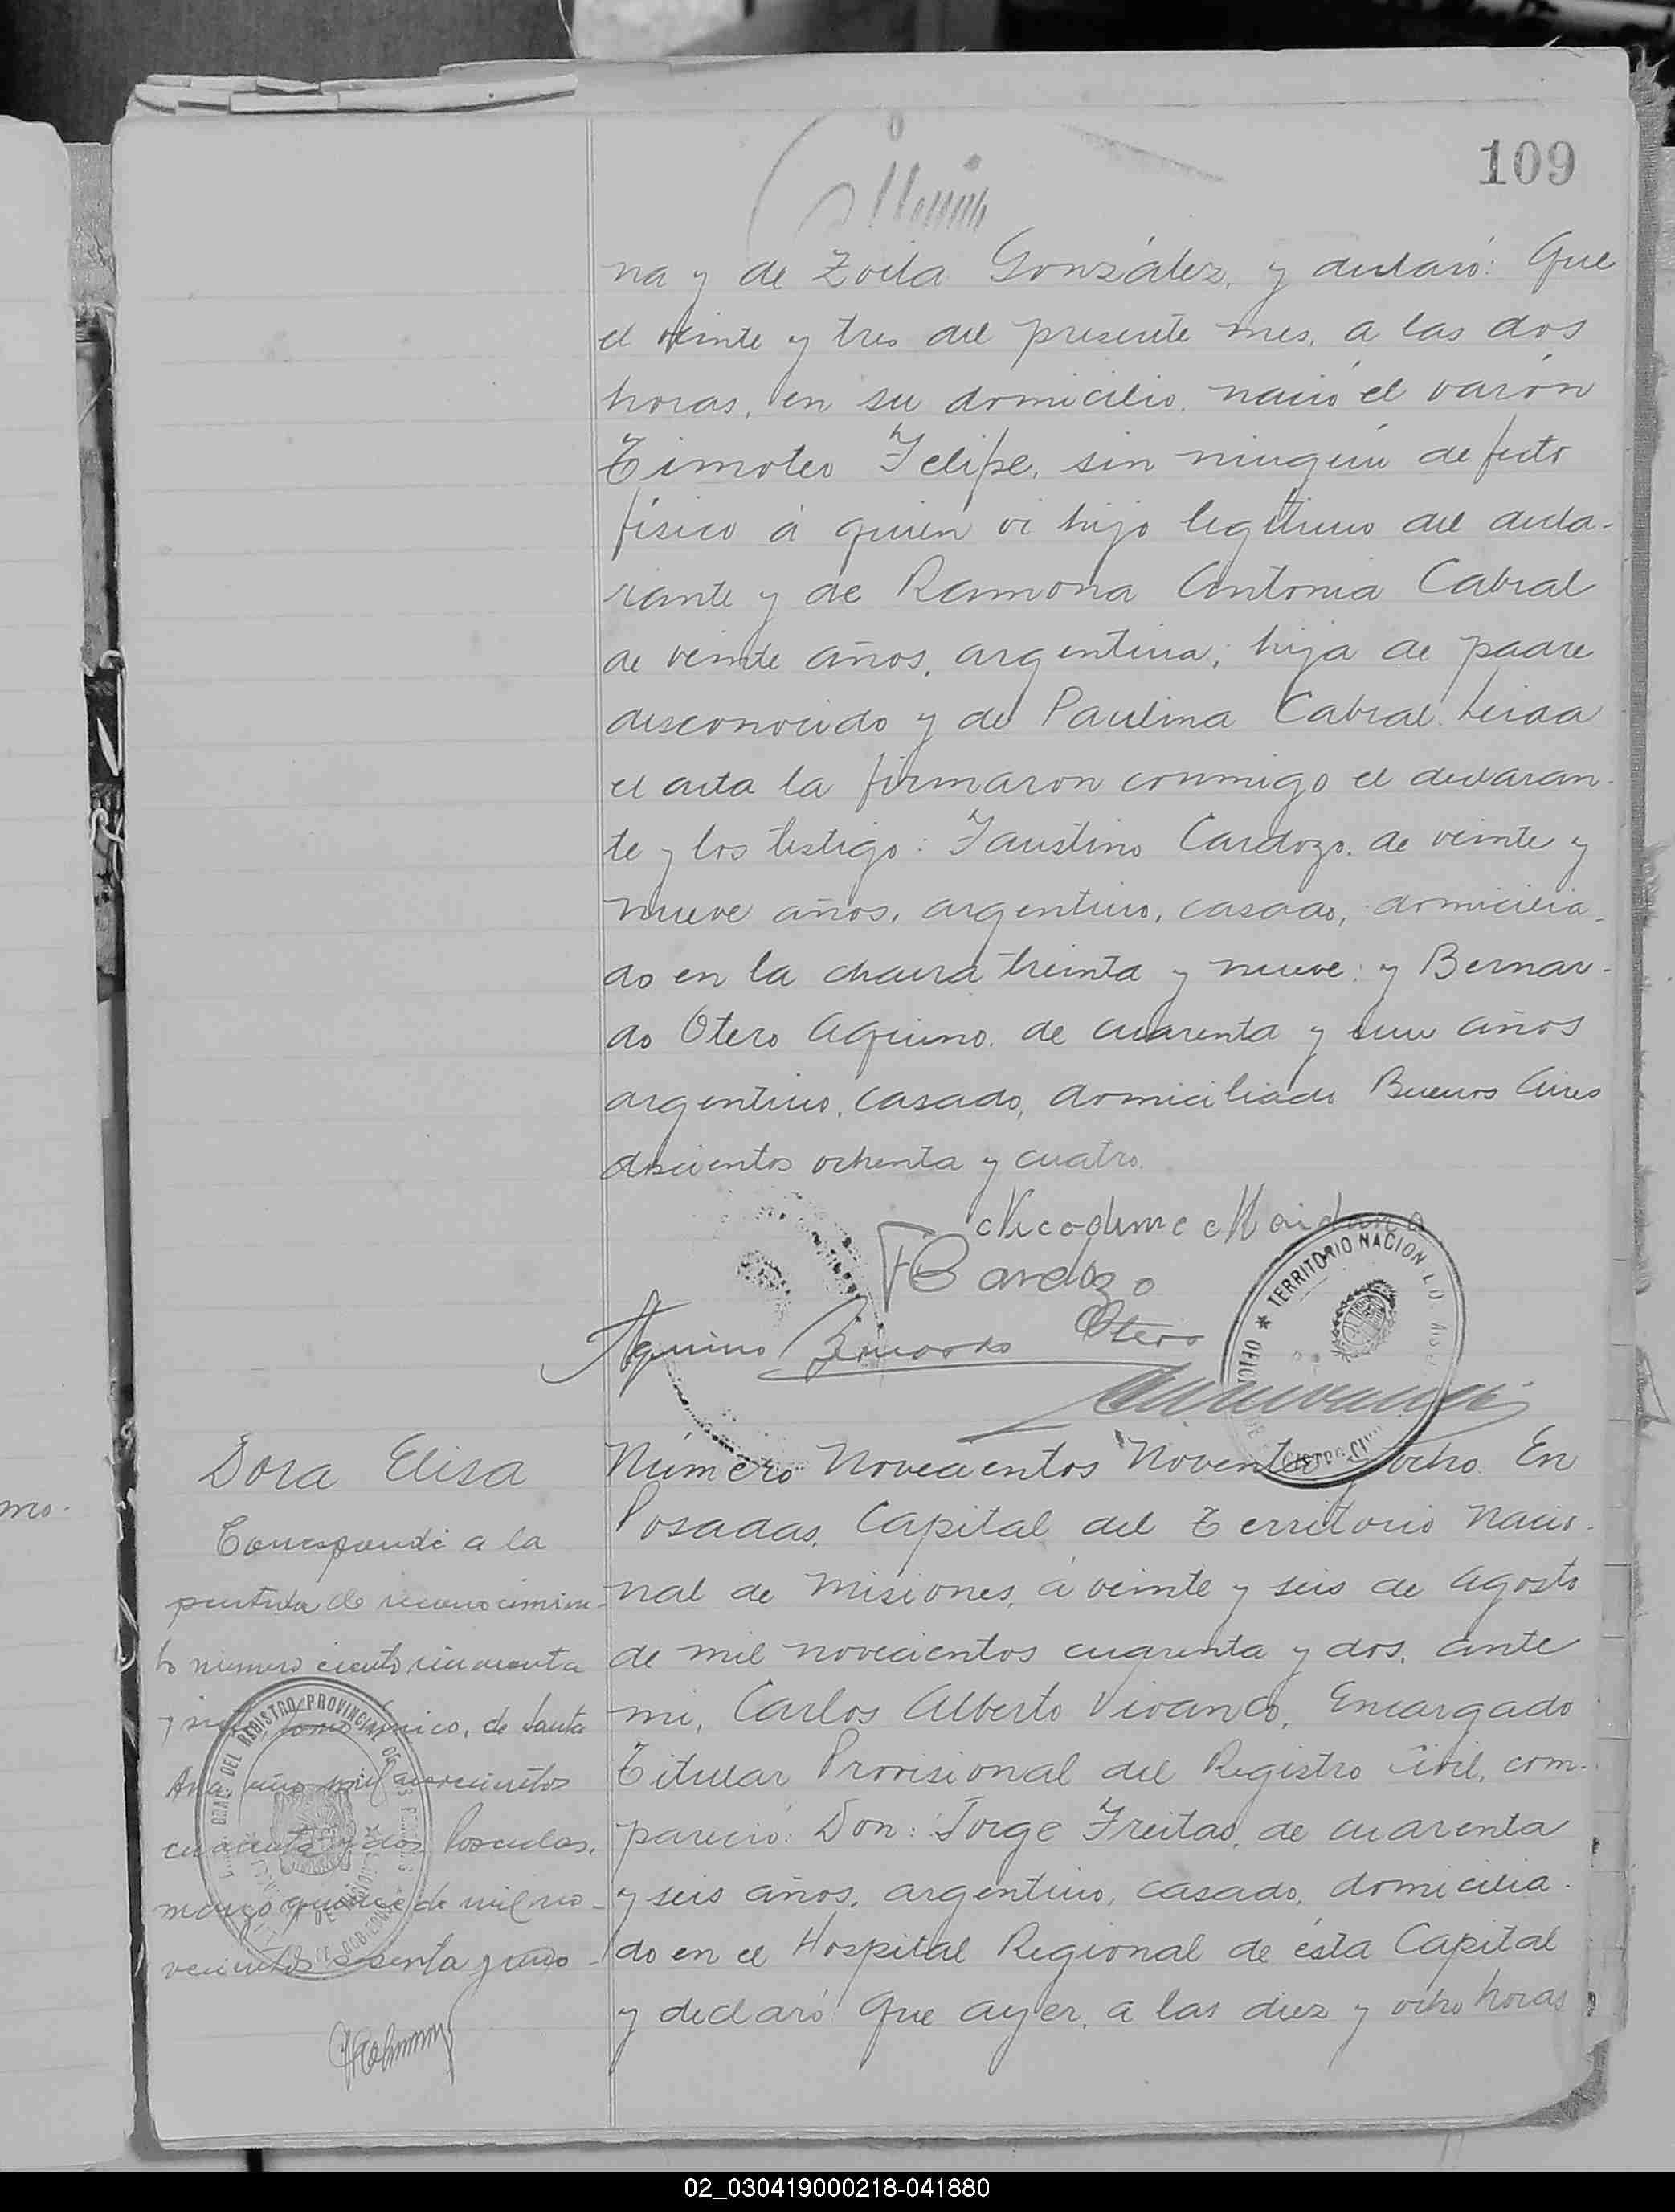 109
na y de Zoila González, y declaró: Que
el veinte y tres del presente mes, a las dos
horas, en su domicilio, nació el varón
Timoteo Felipe, sin ningún defecto
físico á quien vi hijo legítimo del decla-
rante y de Ramona Antonia Cabral
de veinte años, argentina, hija de padre
desconocido y de Paulina Cabral. Leida
el acta la firmaron conmigo el declaran-
te y los testigo: Faustino Cardozo, de veinte y
nueve años, argentino, casado, domicilia-
do en la chacra treinta y nueve: y Bernar-
do Otero Aquino, de cuarenta y años
argentino, casado, domiciliado Buenos Aires
doscientos ochenta y cuatro.
Nicodeme Maidana
F Cardozo
Aquino Bernardo Otero
TERRITORIO NACION
Dora Elisa
Corresponde a la
partida de reconocimien-
to número ciento cincuenta
y tomo único, de Santa
Ana año mil novecientos
cuarenta y dos Posadas,
marzo quince de mil no-
vecientos sesenta y uno
DEL REGISTRO PROVINCIAL DE LAS PERSONAS
Número Novecientos Noventa y ocho. En
Posadas, Capital del Territorio Nacio-
nal de Misiones, á veinte y seis de Agosto
de mil novecientos cuarenta y dos, ante
mi, Carlos Alberto Vivanco, Encargado
Titular Provisional del Registro Civil, com-
pareció: Don: Jorge Freitas, de cuarenta
y seis años, argentino, casado, domicilia-
do en el Hospital Regional de ésta Capital
y declaró: Que ayer, a las diez y ocho horas
02_030419000218-041880